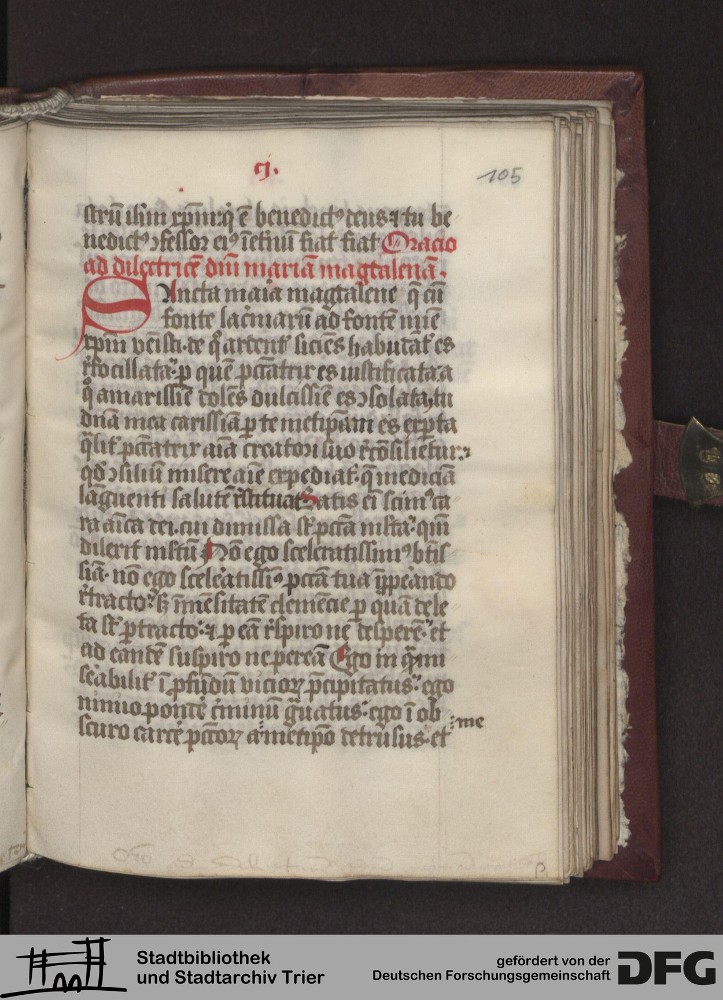 cj.
105
strū ihm xpm: q̇ ē benedict⁹ deus ⁊ tu be
nedict⁹ ꝯfessor ei⁹ ī etnū fiat fiat Oracio
ad dilectricē dn̄i mariā magdalenā.
SAncta maīa magdalene q̄ cū
fonte lac̄maru ad fontē mīe
xpm venisti. de q̊ ardent̄ siciēs habūdāt̄ es
refocillata. p quē pctātrix es iustificata. a
q̊ amarissiē dolēs dulcissiē es ꝯsolata. tu
dn̄a mea carissīa p te metip̄am es exp̄ta
q̄lit̄ pctātrix aīa creatori suo recōsilietur.
qd̄ ꝯsiliū misere aīe expediat. q̄ medicīa
languenti salutē restituat Satis ei scim⁹ ca
ra amīca dei. cui dimissa st̄ pctā mlta. qm̄
dilexit multū Nō ego sceleratissim⁹ btīs
sīa. nō ego scelēatissi⁹ pctā tua īppeando
retracto. sꝫ īmēsitatē clemēcie p quā dele
ta st̄ ptracto. ⁊ p eā respiro ne despere. et
ad eandē suspiro ne pereā Ego in q̄ mi
seabilit̄ ī pfūdū vicioꝝ p̄cipitatus. ego
nimio pondē c̄minū guatus. ego ī ob
scuro carcē pctoꝝ a metip̄o detrusus. et
me
Stadtbibliothek
und Stadtarchiv Trier
gefördert von der
Deutschen Forschungsgemeinschaft
DFG